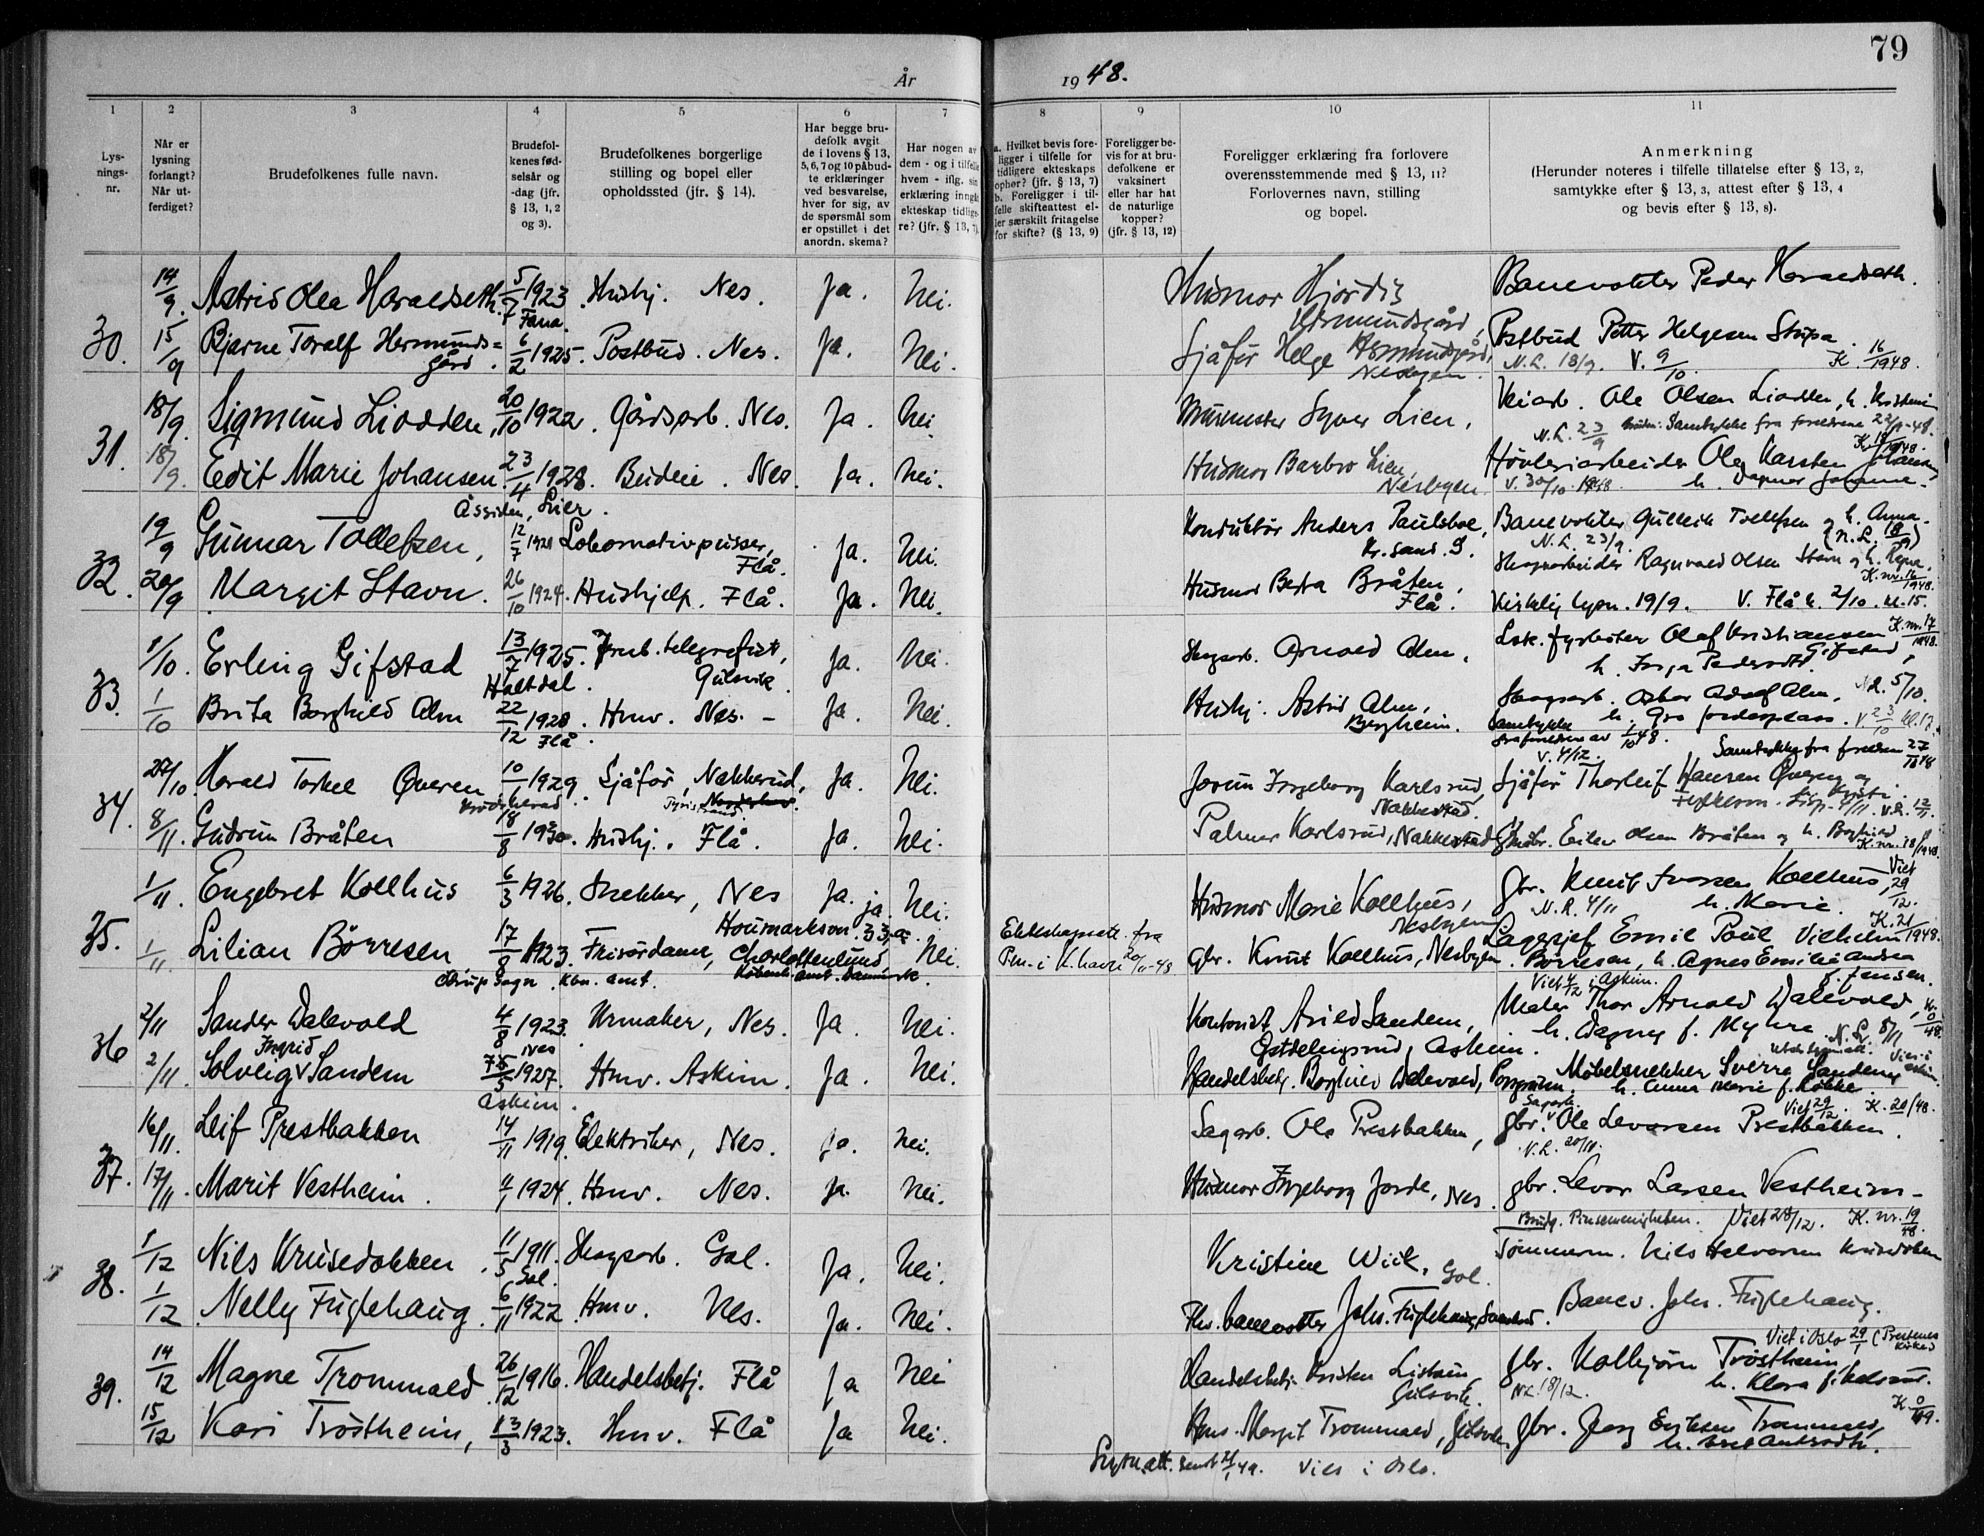 79
År 1948.
1 2 3 4 5 6 7 8 9 10 11
Lysningsnr.
Når er lysning forlangt? Når utferdiget?
Brudefolkenes fulle navn.
Brudefolkenes fødselsår og -dag (jfr. § 13, 1, 2 og 3).
Brudefolkenes borgerlige stilling og bopel eller opholdssted (jfr. § 14).
Har begge brudefolk avgit de i lovens § 13, 5, 6, 7 og 10 påbudte erklæringer ved besvarelse, hver for sig, av de spørsmål som er opstillet i det anordn. skema?
Har nogen av dem - og i tilfelle hvem - iflg. sin erklæring inngått ekteskap tidligere? (jfr. § 13, 7).
a. Hvilket bevis foreligger i tilfelle for tidligere ekteskaps ophør? (jfr. § 13, 7)
b. Foreligger i tilfelle skifteattest eller særskilt fritagelse for skifte? (§ 13, 9)
Foreligger bevis for at brudefolkene er vaksinert eller har hat de naturlige kopper? (jfr. § 13, 12)
Foreligger erklæring fra forlovere overensstemmende med § 13, 11? Forlovernes navn, stilling og bopel.
Anmerkning
(Herunder noteres i tilfelle tillatelse efter § 13, 2, samtykke efter § 13, 3, attest efter § 13, 4 og bevis efter § 13, 8).
30.
14/9. Astrid Olea Haraldseth. 5/7 1923 Fana. Hushj. Nes. Ja. Nei. Husmor Hjørdis Hermundsgård, Banevokter Peder Haraldseth.
15/9 Bjarne Toralf Hermundsgård. 6/2 1925. Postbud. Nes. Ja. Nei. Sjåfør Helge Hermundsgård, Nesbyen. Postbud Petter Helgesen
N.L. 18/9. V. 9/10. K. 16/1948.
31.
18/9. Sigmund Liodden, 20/10 1922. Gårdsarb. Nes. Ja. Nei. Murmester Syver Lien, Veiarb. Ole Olsen Liodden, h. Kristine
N.L. 23/9 Samtykke fra foreldrene
18/9. Edit Marie Johansen 23/4 1928. Budeie. Nes. Ja. Nei. Husmor Barbro Lien, Nesbyen. Høvleriarbeider Ole Karsten Johansen
Åssiden, Lier. V. 30/10 1948.
32.
19/9 Gunnar Tollefsen, 12/7 1921 Lokomotivpusser, Flå. Ja. Nei. Konduktør Anders Paulsboe, Kr.sand. S. Banevokter Gulleik Tollefsen og h. Anna.
N.L. 23/9.
20/9 Margit Stavn. 26/10 1924. Hushjelp. Flå. Ja. Nei. Husmor Berta Bråten, Flå. Skogsarbeider Ragnvald Olsen Stavn og h.
Kirkelig lysn. 19/9. V. Flå k. 2/10. kl. 15.
33.
1/10. Erling Gifstad 13/7 1925. Haltdal. Jernb. telegrafist, Gulsvik. Ja. Nei. Skogsarb. Arnold Alm, Lok. fyrbøter Olaf Kristiansen Gifstad,
K. nr. 17/1948.
1/10 Brita Borghild Alm 22/12 1928. Flå. Hmv. Nes. - Ja. Nei. Hushj. Astrid Alm, Bergheim. Skogsarb. Oskar Adolf Alm, N.L. 5/10.
Samtykke fra foreldrene av 1/10 48.
34.
27/10. Harald Torkel Øveren 10/6 1929. Sjåfør, Nakkerud, Ja. Nei. Jorun Ingeborg Karlsrud, Nakkestad. Sjåfør Thorleif Hansen Øveren og
V. 4/12. Samtykke fra foreldrene 27/10 48
8/11. Gudrun Bråten 18/8 1930. Hushj. Flå. Ja. Nei. Palmer Karlsrud, Nakkestad Eilev Olsen Bråten og h. Borghild
K. nr. 18/1948.
35.
1/11. Engebret Kollhus 6/3 1926. Snekker, Nes Ja. ja. Nei. Husmor Marie Kollhus, Nesbyen gbr. Knut Iversen Kollhus, Viet 29/12.
N.L. 4/11 h. Marie. K. 21/1948.
1/11 Lilian Börresen 17/8 1923. Frisördame, Charlottenlund Nei. Ekteskapsatt. fra gbr. Knut Kollhus, Nesbyen Lagersjef Emil Poul Vilhelm Börresen, h. Agnes Emilie Andrea f. Jensen.
Københ. amt. Danmark.
36
2/11 Sander Dalevold 4/8 1923. Nes Urmaker, Nes. Ja. Nei. Kontorist Arild Sandem, Askim. Maler Thor Arnold Dalevold, h. Dagny f. Myhre.
Viet 4/12 i Askim. N.L. 8/11
2/11. Solveig Ingrid Sandem 1927. Askim. Hmv. Askim. Ja. Nei. Handelsbetj. Borghild Dalevold, Porsgrunn. Møbelsnekker Sverre Sandem, h. Anna Marie f. Løkke.
37.
16/11. Leif Prestbakken 14/11 1919. Elektriker, Nes. Ja. Nei. Sagarb. Ola Prestbakken, gbr. Sagarb. Ole Levorsen Prestbakken.
Viet 29/12. K. 20/48.
N.L. 20/11.
17/11. Marit Vestheim. 1924. Hmv. Nes. Ja. Nei. Husmor Ingeborg Jorde, Nes. gbr. Levor Larsen Vestheim -
Brudg. Pinsemenigheten. Viet 28/12. K. nr. 19/48
38.
1/12 Nils Krusedokken 11/5 1911. Gol. Skogsarb. Gol. Ja. Nei. Kristine Wiik, Gol. Tømmerm. Nils Halvorsen Krusedokken
1/12 Nelly Fuglehaug. 6/11 1922 Hmv. Nes. Ja. Nei. Fhv. banevokter Johs. Fuglehaug, Banev. Johs. Fuglehaug.
39.
14/12 Magne Trommald. 26/12 1916. Handelsbetj. Flå Ja Nei Handelsbetj. Kristen Gulsvik. gbr. Kolbjørn Trøstheim
Viet i Oslo 29/1
N.L. 18/12.
15/12 Kari Trøstheim, 13/3 1923. Hmv. Flå Ja Nei. Hms. Margit Trommald, Gulsvik. gbr. Georg Eriksen Trommald,
Lysn.att. sendt 21/1 49. Viet i Oslo.